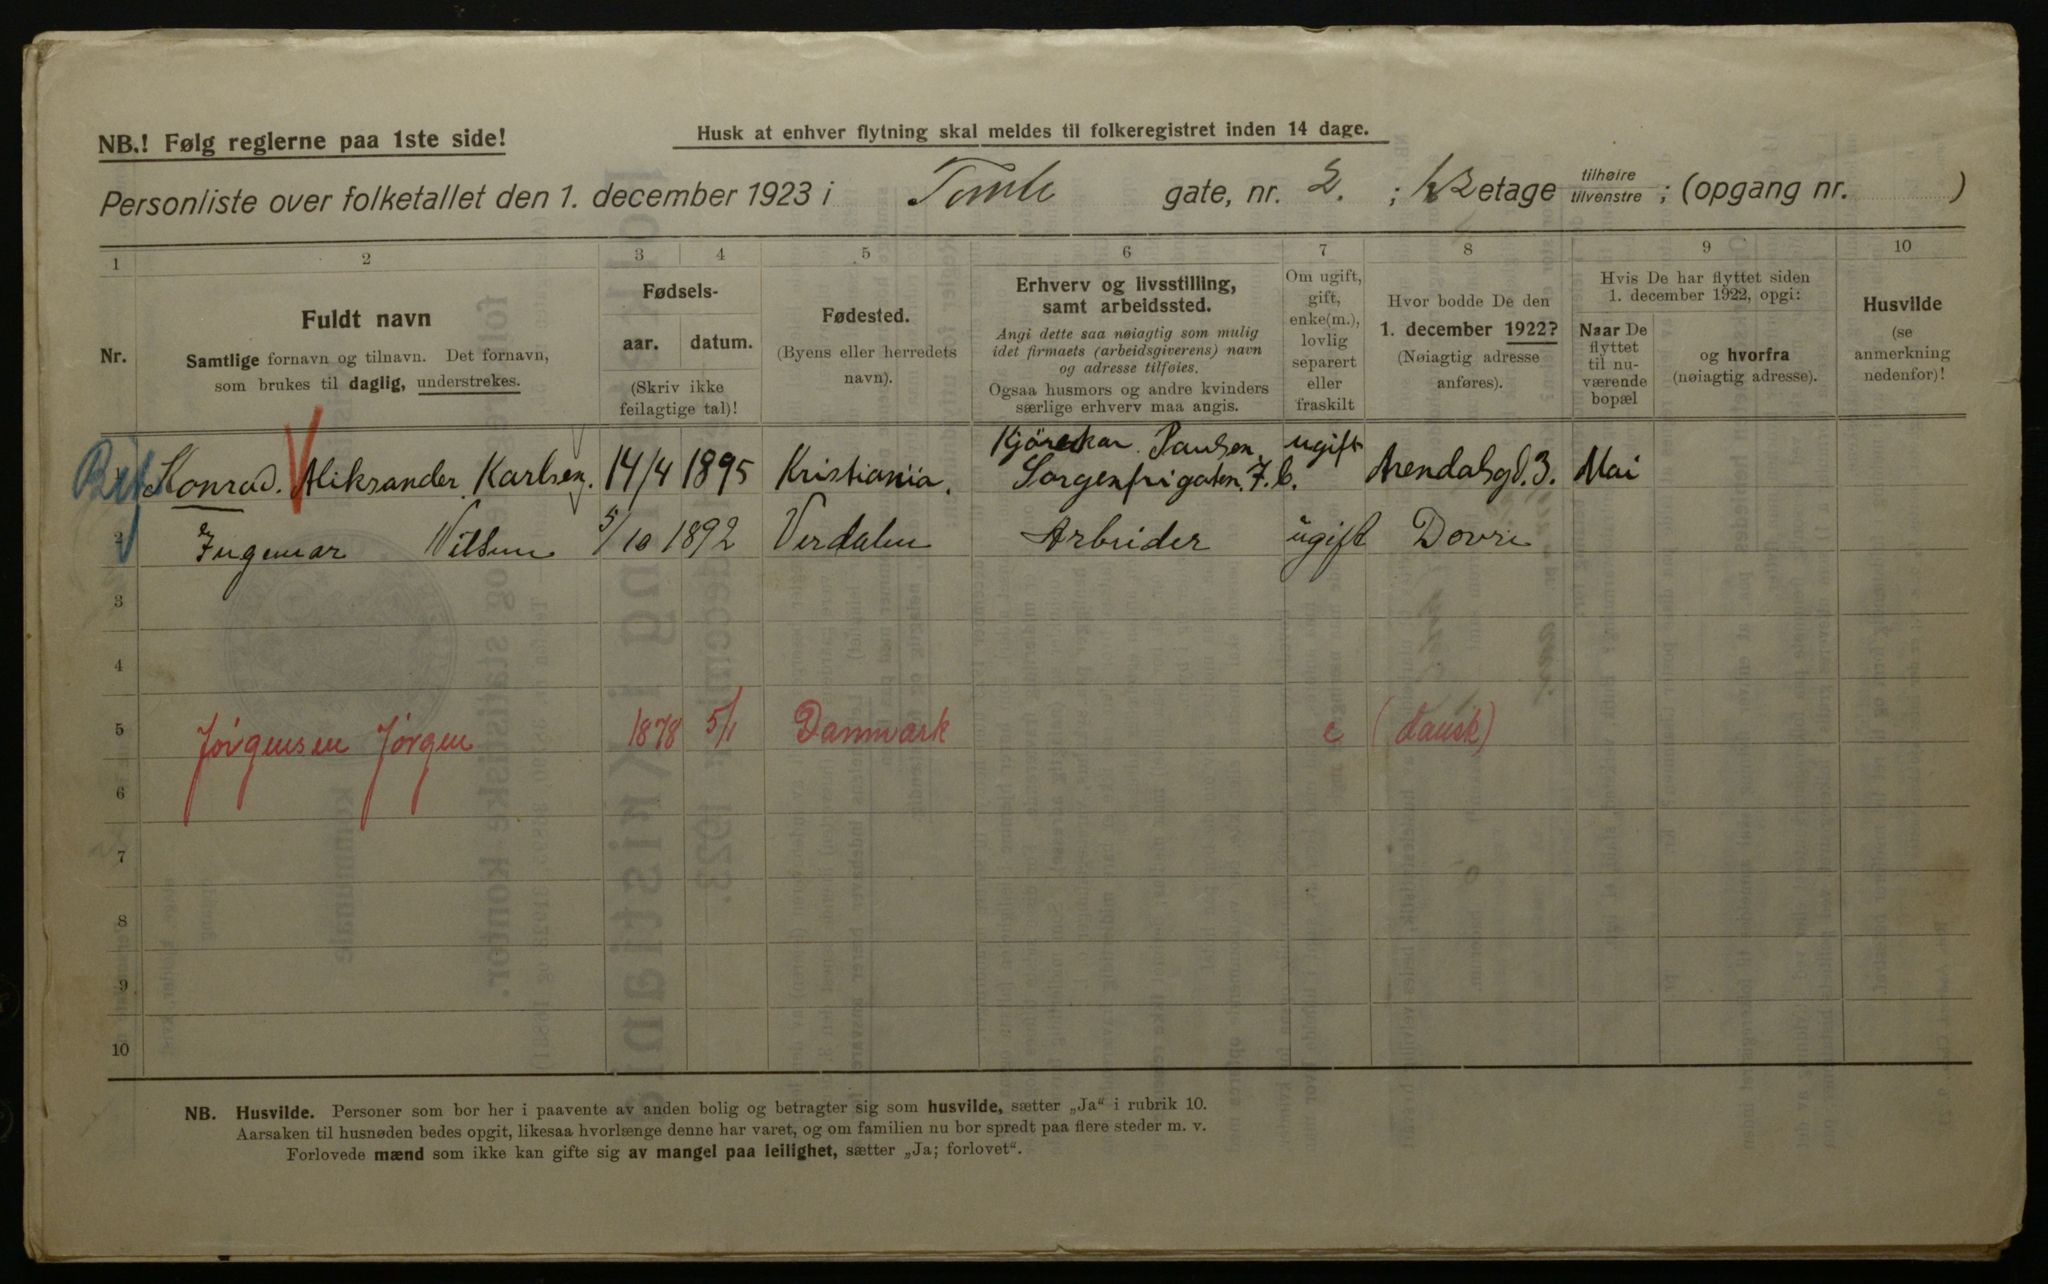 NB.! Følg reglerne paa 1ste side!
Husk at enhver flytning skal meldes til folkeregistret inden 14 dage.
Personliste over folketallet den 1. december 1923 i Tomte gate, nr. 2. ; etage tilhøire tilvenstre ; (opgang nr. )
1 2 3 4 5 6 7 8 9 10
Nr.
Fuldt navn
Samtlige fornavn og tilnavn. Det fornavn,
som brukes til daglig, understrekes.
Fødsels-
aar. datum.
(Skriv ikke
feilagtige tal)!
Fødested.
(Byens eller herredets
navn).
Erhverv og livsstilling,
samt arbeidssted.
Angi dette saa nøiagtig som mulig
idet firmaets (arbeidsgiverens) navn
og adresse tilføies.
Ogsaa husmors og andre kvinders
særlige erhverv maa angis.
Om ugift,
gift,
enke(m.),
lovlig
separert
eller
fraskilt
Hvor bodde De den
1. december 1922?
(Nøiagtig adresse
anføres).
Hvis De har flyttet siden
1. december 1922, opgi:
Naar De
flyttet
til nu-
værende
bopæl
og hvorfra
(nøiagtig adresse).
Husvilde
(se
anmerkning
nedenfor)!
Konrad. Aliksander. Karlsen. 14/4 1895 Kristiania. Kjørekar Paulsen. Sorgenfrigaten. 7. b. ugift Arendalsgd. 3. Mai
2 Ingemar Nilsen 5/10 1892 Verdalen Arbeider ugift Dovre
3
4
5 Jørgensen Jørgen 1878 5/1 Danmark e (dansk)
6
7
8
9
10
NB. Husvilde. Personer som bor her i paavente av anden bolig og betragter sig som husvilde, sætter „Ja“ i rubrik 10.
Aarsaken til husnøden bedes opgit, likesaa hvorlænge denne har varet, og om familien nu bor spredt paa flere steder m. v.
Forlovede mænd som ikke kan gifte sig av mangel paa leilighet, sætter „Ja; forlovet“.